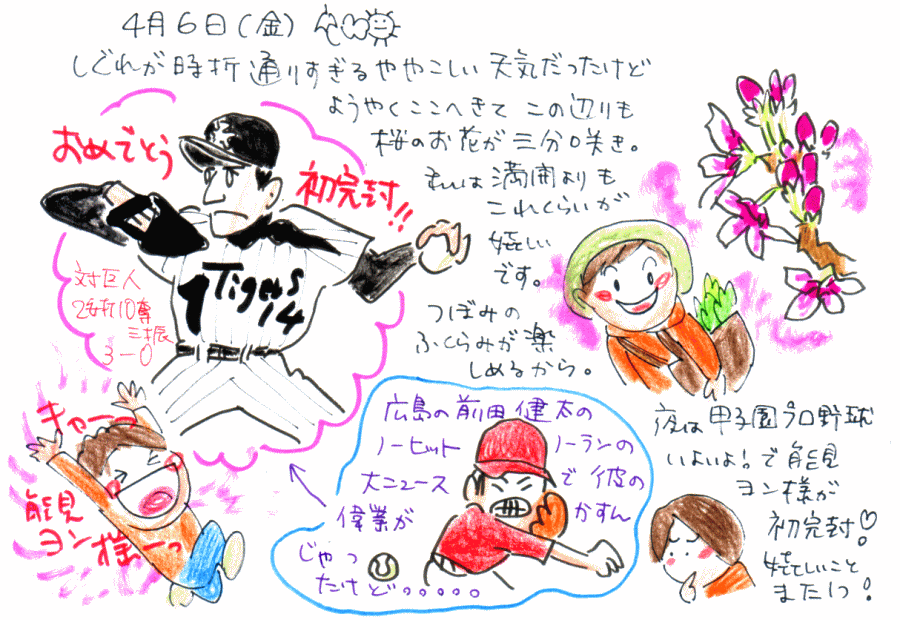 4月6日(金)
しぐれが時折通りすぎるややこしい天気だったけど
ようやくここへきてこの辺りも
桜のお花が三分咲き。
わたしは満開よりも
これくらいが
嬉しい
です。
つぼみの
ふくらみが楽
しめるから。
おめでとう
初完封!!
Tigers
14
対巨人
2安打10奪
三振
3-0
キャーっ
能見
ヨン様ーっ
広島の前田健太の
ノーヒットノーランの
大ニュースで彼の
偉業がかすん
じゃっ
たけど。。。。。
夜は甲子園プロ野球
いよいよ!で能見
ヨン様が
初完封♡!
嬉しいこと
また1つ!